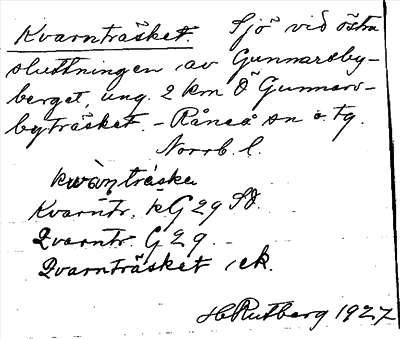 Kvarnträsket. Sjö vid östra
sluttningen av Gunnarsby-
berget, ung. 2 km Ö Gunnars-
byträsket. - Råneå sn o tg.
Norrb. l.
kwàn̥träska
Kvarntr. kG 29 SO.
Qvarntr. G 29.
Qvarnträsket, ek.
H Rutberg 1927